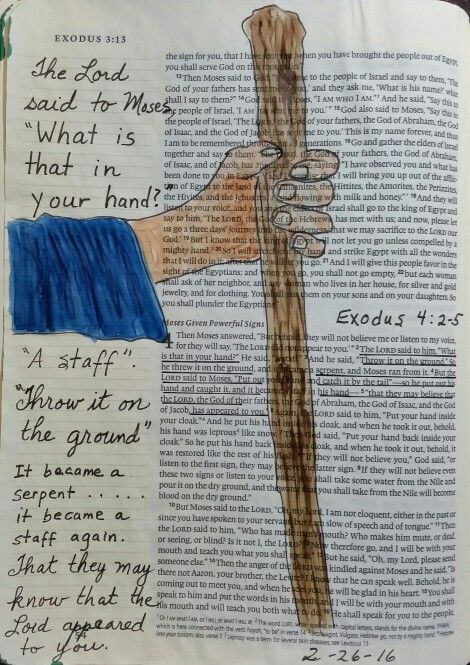 EXODUS 3:13
The Lord
said to Moses,
"What is
that in
your hand?"
"A staff"
"Throw it on
the ground"
It became a
serpent .....
it became a
staff again.
That they may
know that the
Lord appeared
to you.
the sign for you, that I have when you have brought the people out of Egypt,
you shall serve God on this mountain."
13Then Moses said to to the people of Israel and say to them, 'The
God of your fathers has and they ask me, 'What is his name?' what
shall I say to them?" 14God "I AM WHO I AM." And he said, "Say this to
the people of Israel, 'I AM to you.'" 15God also said to Moses, "Say this
to the people of Israel, 'The LORD, the God of your fathers, the God of Abraham, the God
of Isaac, and the God of Jacob, to you.' This is my name forever, and thus
I am to be remembered generations. 16Go and gather the elders of Israel
together and say to them, your fathers, the God of Abraham,
of Isaac, and of Jacob, has saying, "I have observed you and what has
been done to you I will bring you up out of the
the Hittites, the Amorites, the Perizzites,
flowing with milk and honey."' 18And they will
listen to your voice, and you of Israel shall go to the king of Egypt and
say to him, 'The LORD, the Hebrews, has met with us; and now, please let
us go a three days' that we may sacrifice to the LORD our
God.' 19But I know that not let you go unless compelled by a
mighty hand. 20So I will hand and strike Egypt with all the wonders
that I will do in it; after let you go. 21And I will give this people favor in the
sight of the Egyptians; and you go, you shall not go empty, 22but each woman
shall ask of her neighbor, and woman who lives in her house, for silver and gold
jewelry, and for clothing. You shall them on your sons and on your daughters. So
you shall plunder the Egyptians."
Exodus 4:2-5
Moses Given Powerful Signs
4 Then Moses answered, "But behold, they will not believe me or listen to my voice,
for they will say, 'The LORD did not appear to you.'" 2The LORD said to him, "What
is that in your hand?" He said, "A staff." 3And he said, "Throw it on the ground." So
he threw it on the ground, and it became a serpent, and Moses ran from it. 4But the
LORD said to Moses, "Put out your hand and catch it by the tail"—so he put out his
hand and caught it, and it became a staff in his hand— 5"that they may believe that
the LORD, the God of their fathers, the God of Abraham, the God of Isaac, and the God
of Jacob, has appeared to you." the LORD said to him, "Put your hand inside
your cloak." And he put his hand inside his cloak, and when he took it out, behold,
his hand was leprous like snow. 7Then God said, "Put your hand back inside your
cloak." So he put his hand back inside his cloak, and when he took it out, behold, it
was restored like the rest of his flesh. 8"If they will not believe you," God said, "or
listen to the first sign, they may believe the latter sign. 9If they will not believe even
these two signs or listen to your voice, you shall take some water from the Nile and
pour it on the dry ground, and the water that you shall take from the Nile will become
blood on the dry ground."
10But Moses said to the LORD, "Oh, my Lord, I am not eloquent, either in the past or
since you have spoken to your servant, but I am slow of speech and of tongue." 11Then
the LORD said to him, "Who has made man's mouth? Who makes him mute, or deaf,
or seeing, or blind? Is it not I, the LORD? 12Now therefore go, and I will be with your
mouth and teach you what you shall speak." 13But he said, "Oh, my Lord, please send
someone else." 14Then the anger of the LORD was kindled against Moses and he said, "Is
there not Aaron, your brother, the Levite? I know that he can speak well. Behold, he is
coming out to meet you, and when he sees you, he will be glad in his heart. 15You shall
speak to him and put the words in his mouth, and I will be with your mouth and with
his mouth and will teach you both what to do. 16He shall speak for you to the people,
2-26-16